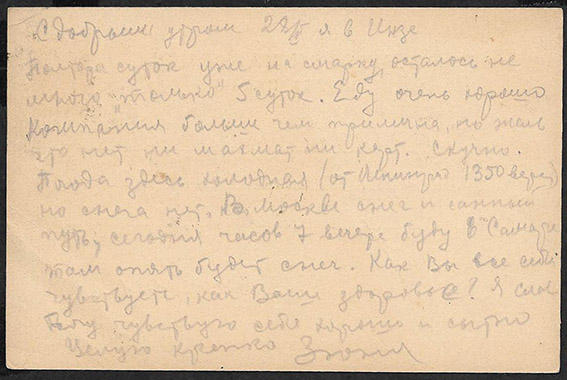 С добрым утром 28/ я в Инзе
Полтора суток уже на смарку, осталось не
много "только" 5 суток. Еду очень хорошо
компания больше чем прилична, но жаль
что нет ни шахмат ни карт. Скучно.
Погода здесь холодная (от 1350 верст)
но снега нет. В Москве снег и санный
путь, сегодня часов 7 вечера буду в Самаре
там опять будет снег. Как Вы все себя
чувствуете, как Ваше здоровье? Я слава
Богу чувствую себя хорошо и сытно
Целую крепко Зюня